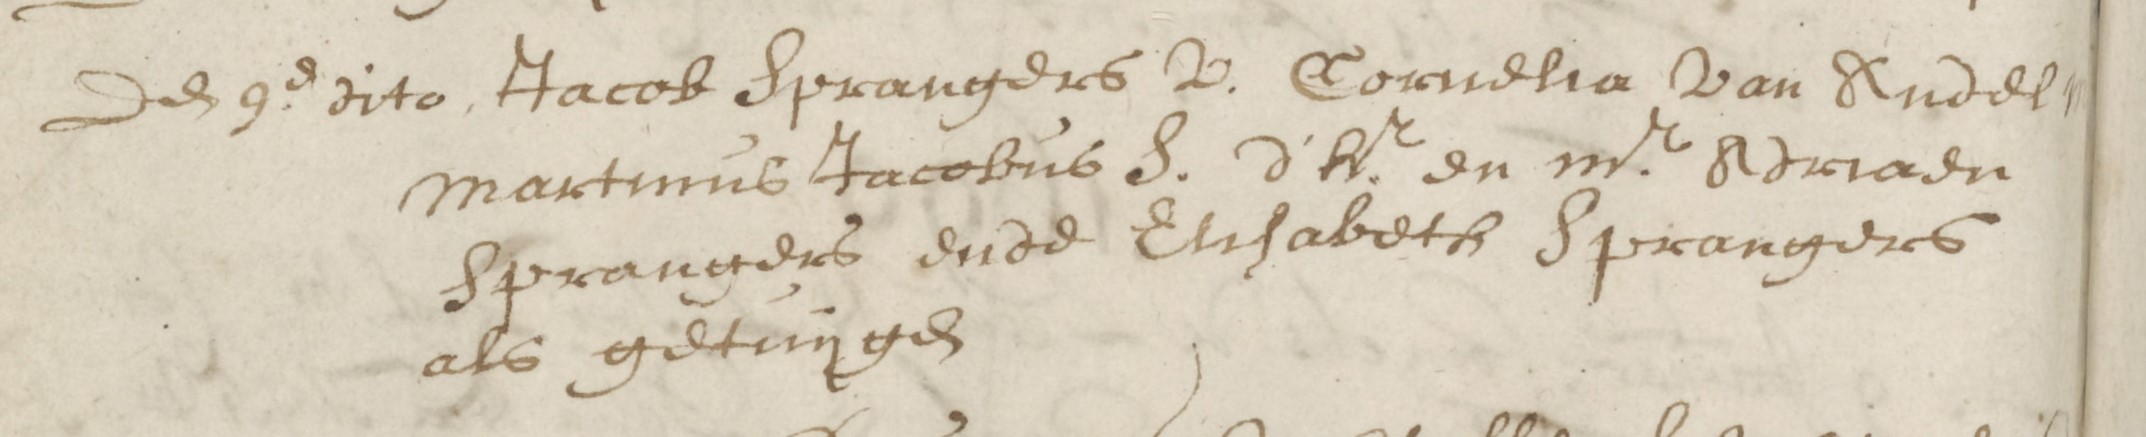 Den 9.e dito, Jacob Sprangers V. Cornelia Van Andel
Martinus Jacobus S. d'hr. en mr. Adriaen
Sprangers ende Elisabeth Sprangers
als getuijgen